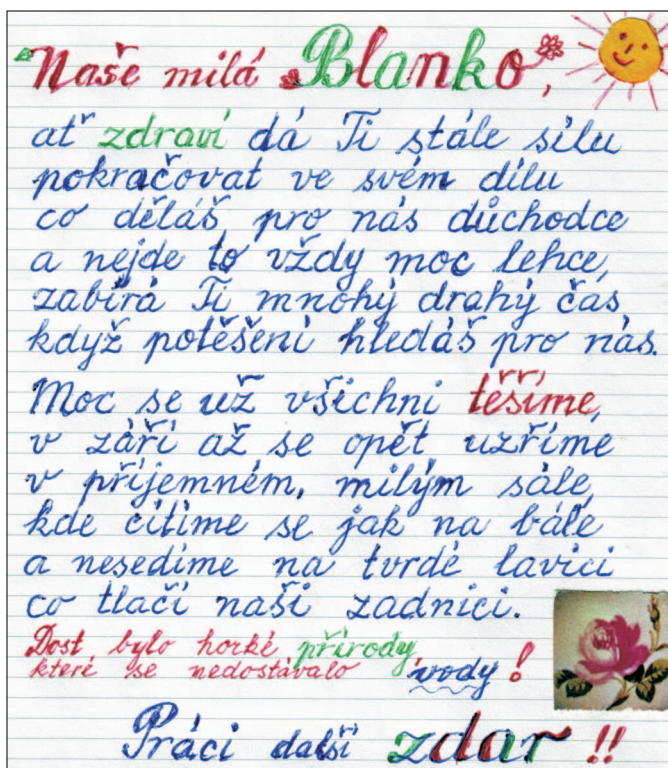 Naše milá Blanko,
ať zdraví dá Ti stále sílu
pokračovat ve svém dílu
co děláš pro nás důchodce
a nejde to vždy moc lehce,
zabírá Ti mnohý drahý čas
když potěšení hledáš pro nás.
Moc se už všichni těšíme,
v září až se opět uzříme
v příjemném, milým sále,
kde cítíme se jak na bále
a nesedíme na tvrdé lavici
co tlačí naši zadnici.
Dost bylo horké přírody,
které se nedostávalo vody!
Práci další zdar!!